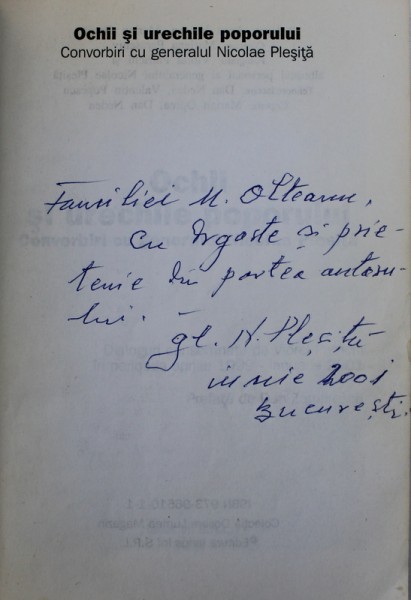 Ochii și urechile poporului
Convorbiri cu generalul Nicolae Pleșiță
Familiei M. Olteanu,
cu dragoste și prie-
tenie din partea autoru-
lui. –
gl. N. Pleșiță
iunie 2001
București.